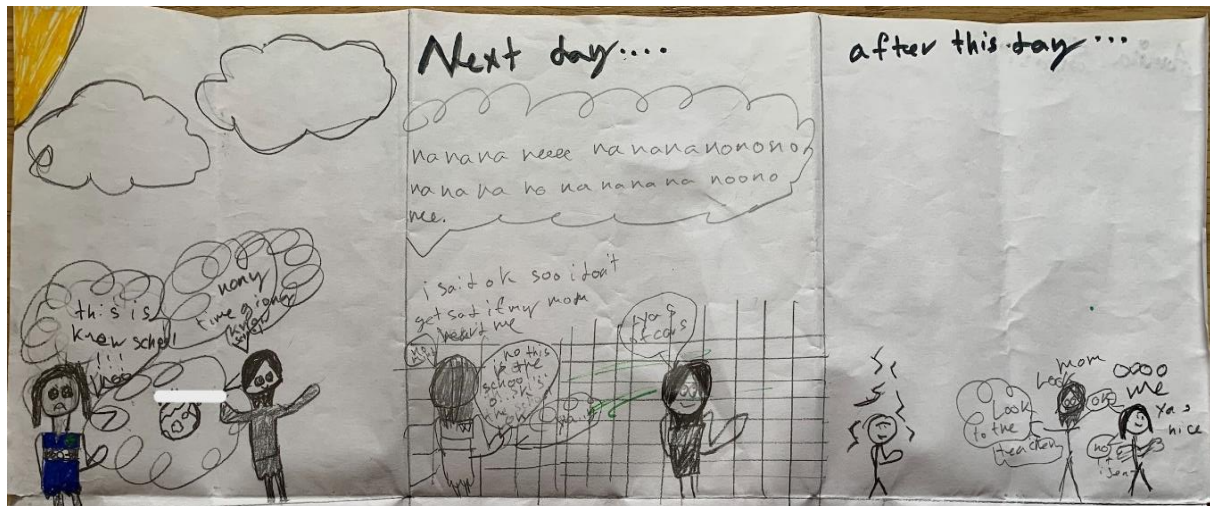 this is
knew school
!!!
noo
nony
time
Next day....
nanana neeee nanananonono
nanana no na nanana noono
nee.
i said ok soo i don't
get sat if my mom
heart me
no this
is the
school
now
yas
of cors
after this day...
mom
look
Look
to the
teacher
ok
oooo
me
yas
nice
no